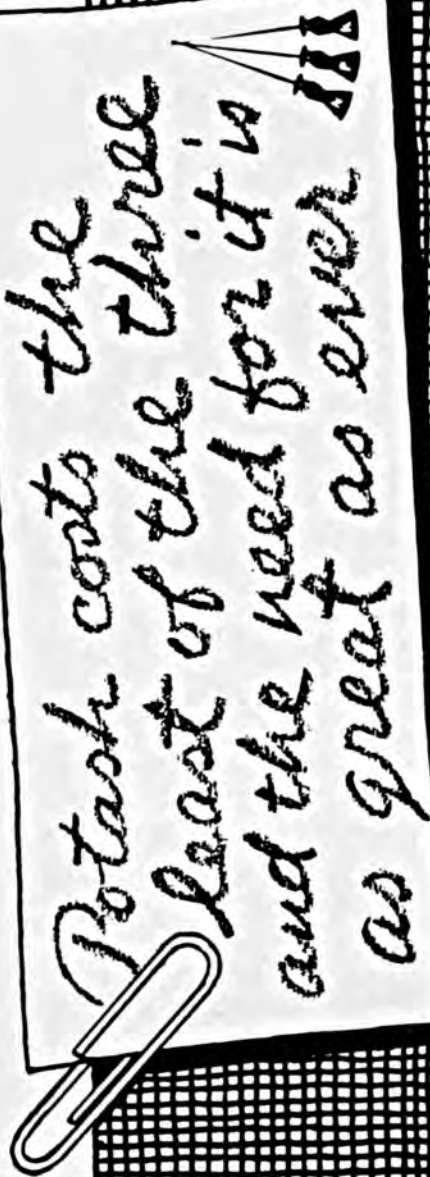 Potash costs the
least of the three
and the need for it is
as great as ever